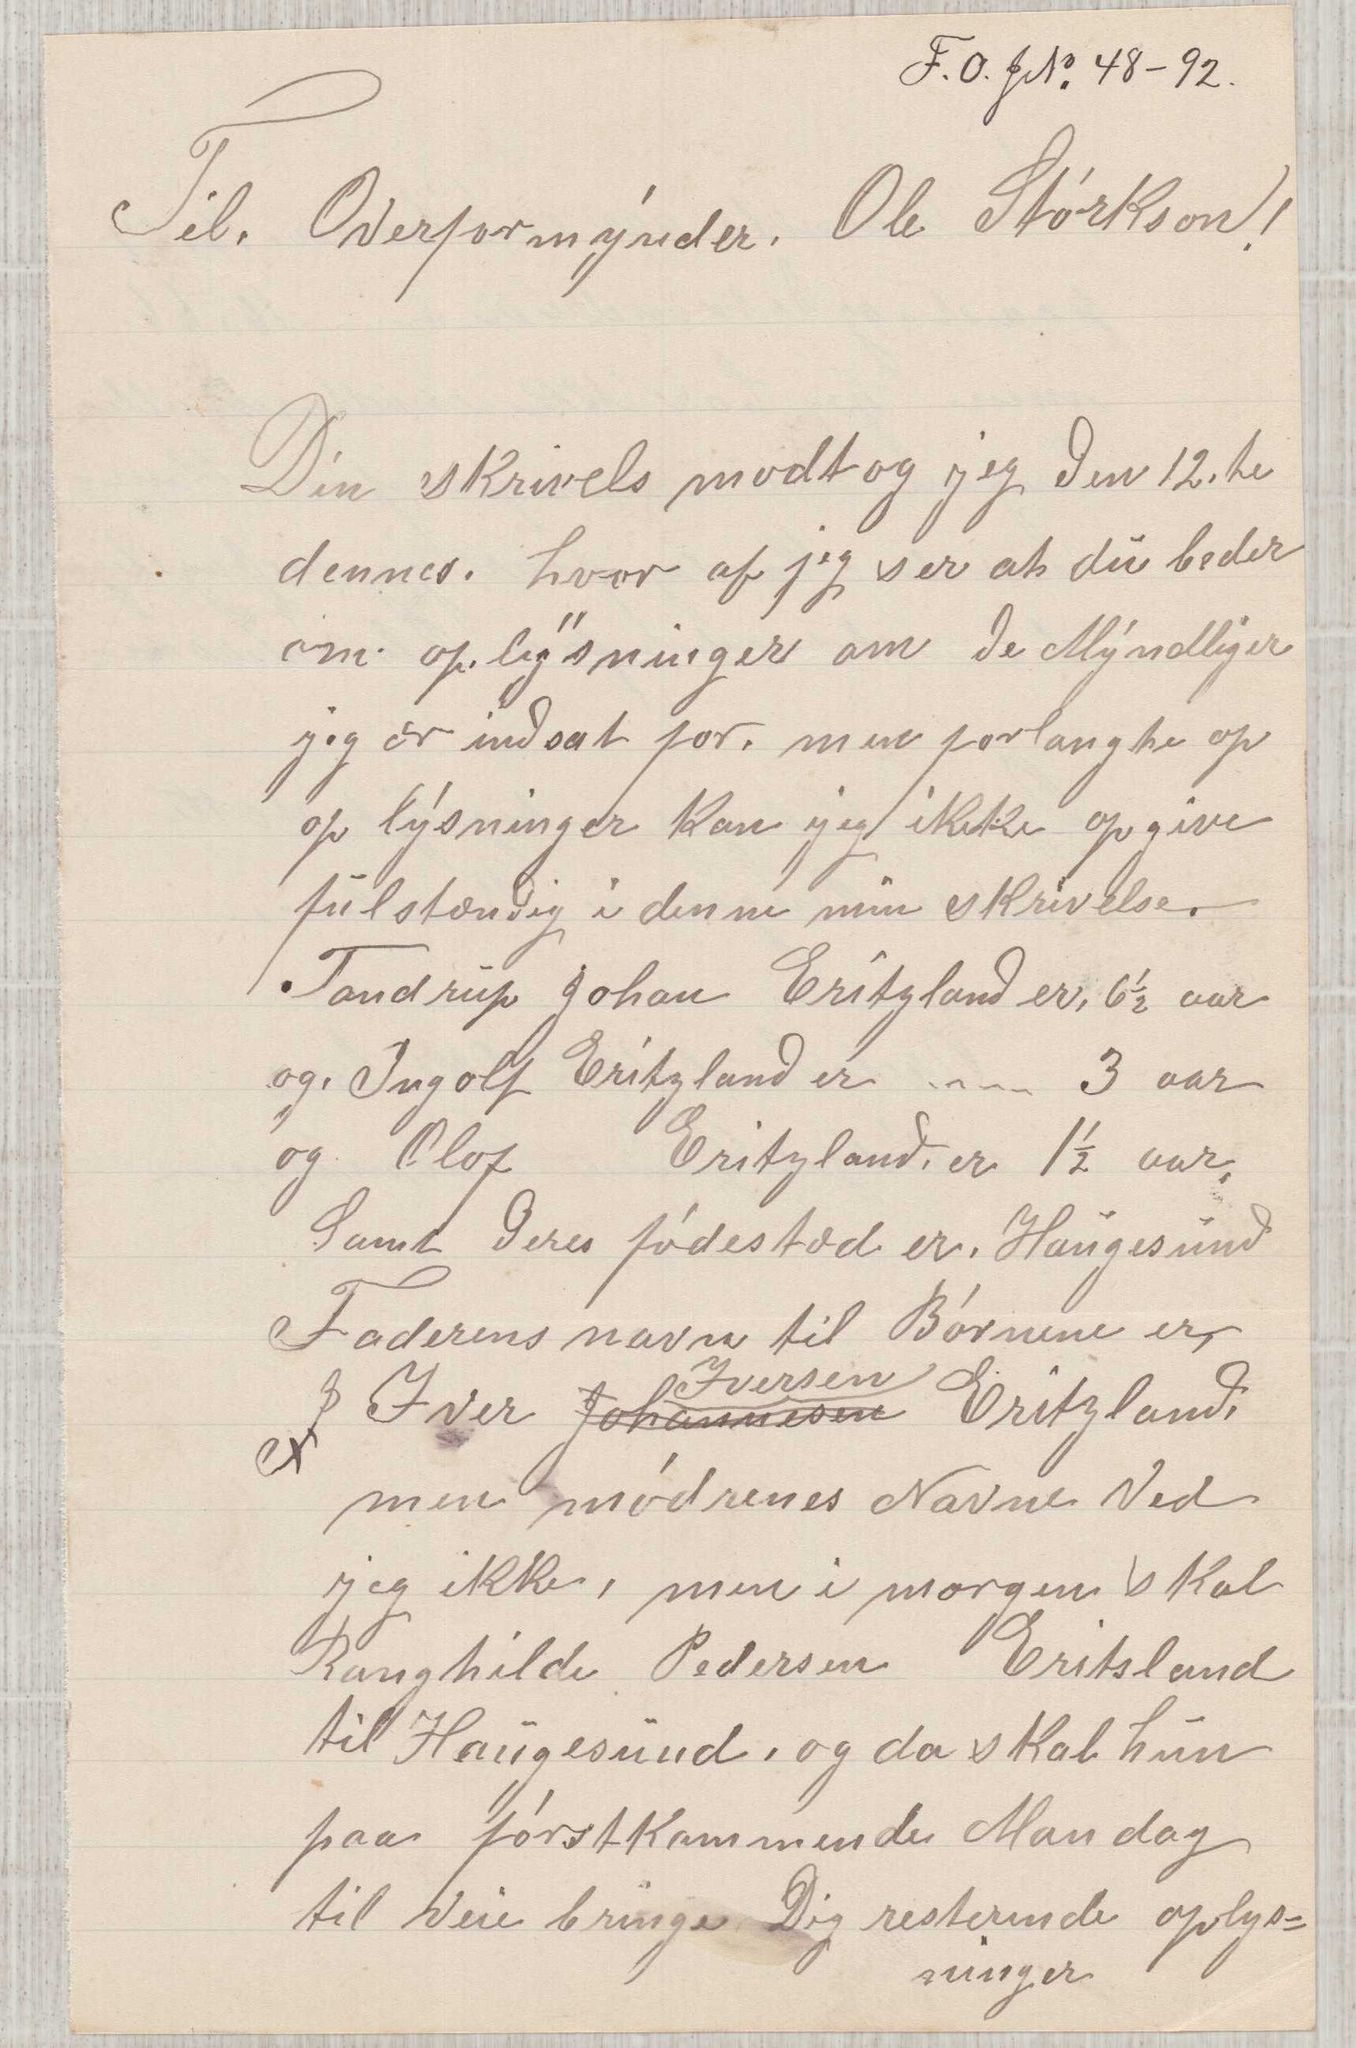 F. O. J.No. 48-92.
Til. Overformýnder. Ole Stórkson!
Din skrivels modtog jeg den 12.te
dennes. hvor af jeg ser at du beder
om op.lysninger om de Mýndliger
jeg er indsat for. men forlangte op
op lýsninger kan jeg ikke opgive
fulstændig i denne min skrivelse.
Tandrup Johan Eritzland er, 6½ aar
og. Ingolf Eritzland er .... 3 aar
og Olof Eritzland. er 1½ aar.
Samt deres fódestæd er. Haugesund
Faderens navn til Bórnene er,
Iversen
Iver Johannesen Eritzland.
men módrenes Navne Ved
jeg ikke, men i morgen skal
Ranghilde Pedersen Eritsland
til Haugesund. og da skal hun
paa fórstkommende Mandag
til veie bringe Dig resterende oplys=
ninger